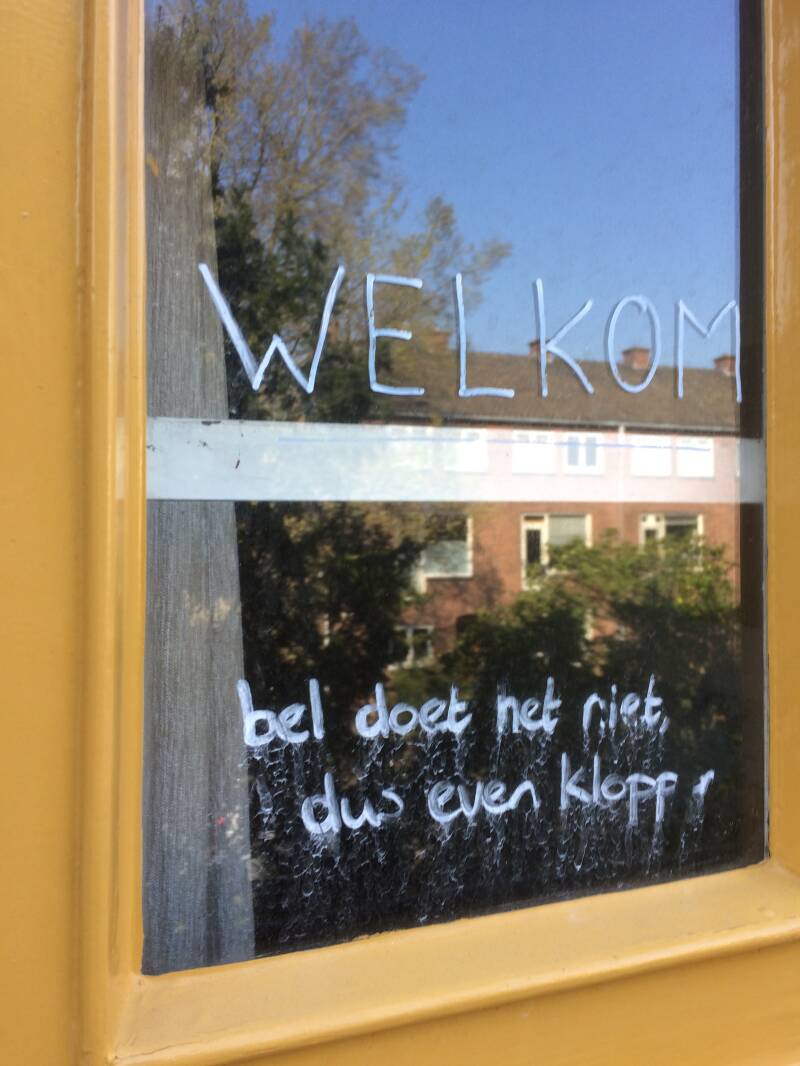 WELKOM
bel doet het niet,
dus even kloppen